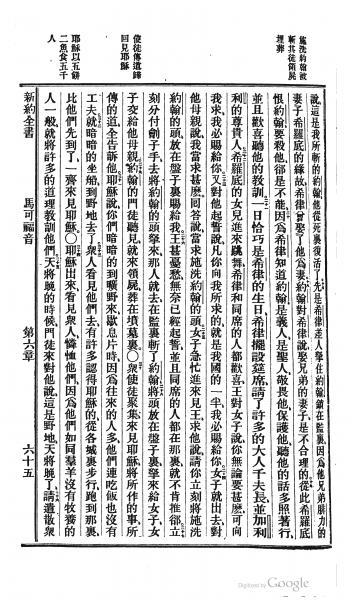 施洗約翰被
斬其徒領屍
埋葬
使徒傳道歸
回見耶穌
耶穌以五餅
二魚食五千
人
說這是我所斬的約翰他從死裏復活了○先是希律差人拏住約翰鎖在監裏因爲他兄弟腓力的
妻子希羅底的緣故希律曾娶了他爲妻約翰對希律說娶兄弟的妻子是不合理的從此希羅底
恨約翰要殺他卻是不能因爲希律知道約翰是義人是聖人敬畏他保護他聽他的話多照著行
並且歡喜聽他的教訓一日恰巧是希律的生日希律擺設筵席請了許多的大人千夫長並加利
利的尊貴人希羅底的女兒進來跳舞希律和同席的人都歡喜王對女子說你無論要甚麽可向
我求我必賜給你又對他起誓說凡你向我所求的就是我國的一半我必賜給你女子就出去對
他母親說我當求甚麽回答說當求施洗約翰的頭女子急忙進來見王求他說請你立刻將施洗
約翰的頭放在盤子裏賜給我王甚憂愁無奈已經起誓並且同席的人都在那裏就不肯推卻立
刻分付劊子手去將約翰的頭拏來那人就去在監裏斬了約翰將頭放在盤子裏拏來給女子女
子交給他母親約翰的門徒聽見就來領屍葬在墳墓裏○衆使徒聚集來見耶穌將所作的事所
傳的道全告訴他耶穌說你們暗暗的到曠野來歇息片時因爲往來的人多他們連喫飯也沒有
工夫就暗暗的坐船到野地去了衆人看見他們去有許多認得耶穌的從各城裏步行跑到那裏
比他們先到了一齊來見耶穌○耶穌出來看見衆人憐恤他們因爲他們如同羣羊沒有牧養的
人一般就將許多的道理教訓他們天將晚的時候門徒來對他說這是野地天將晚了請遣散衆
新約全書 馬可福音 第六章 六十五
Digitized by Google